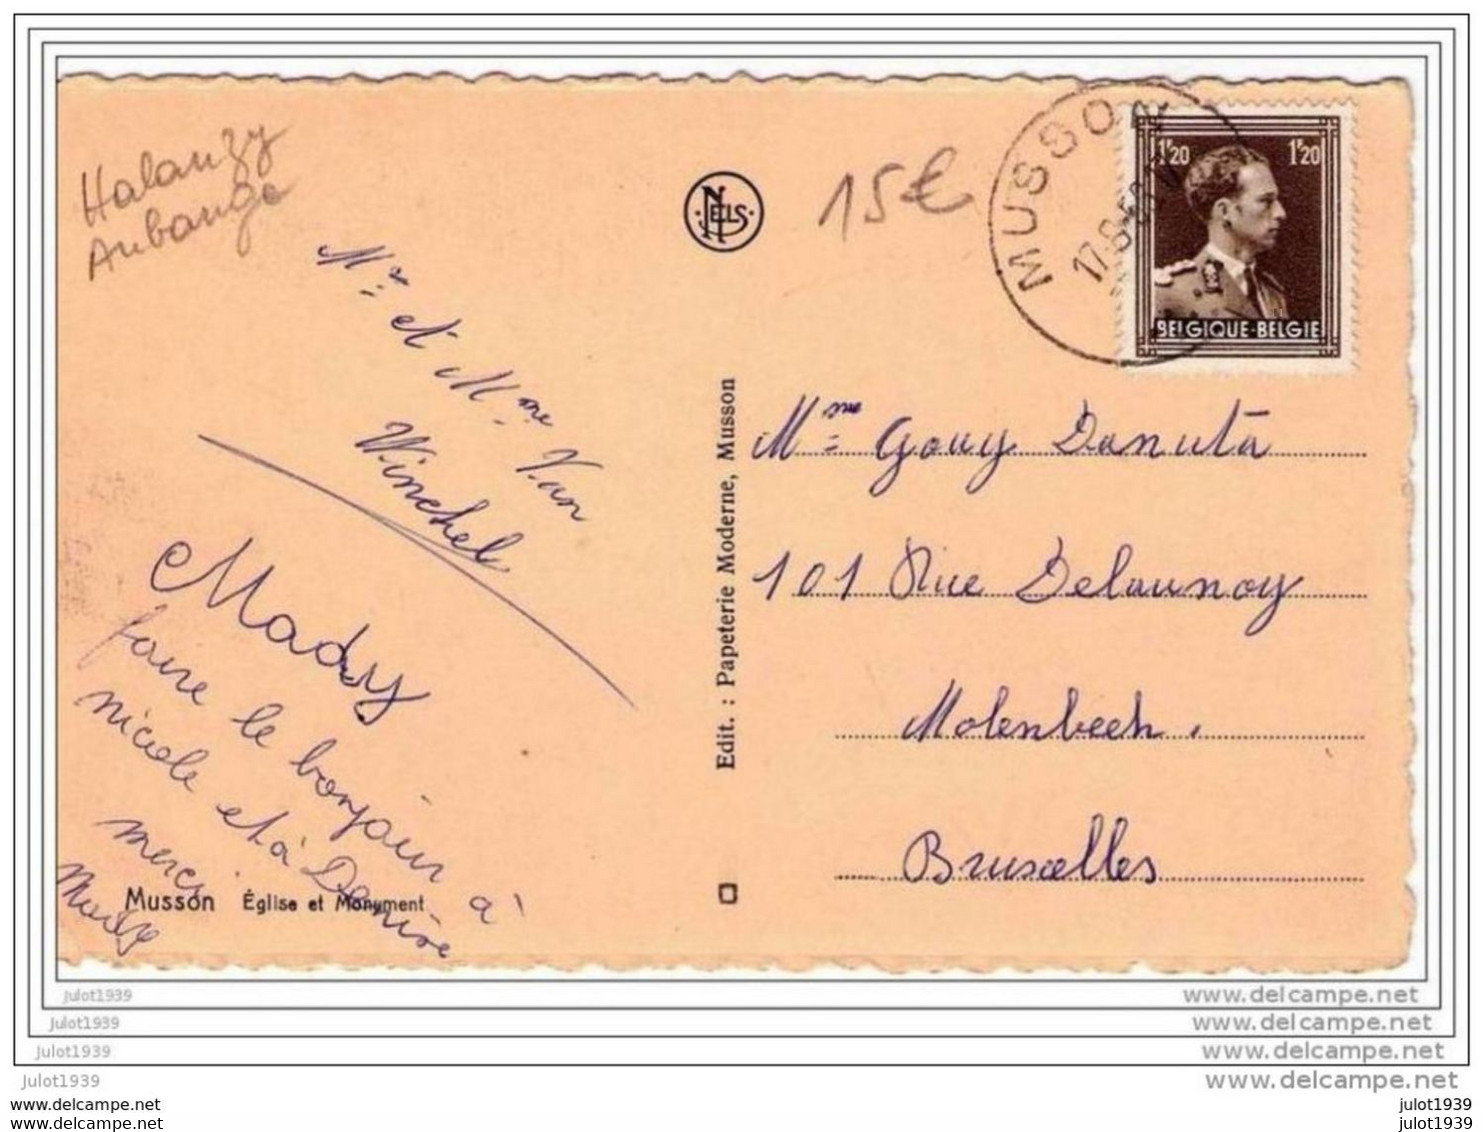 Halanzy
Aubange
NELS
15€
MUSSON
17-8-
1F20 1F20
BELGIQUE-BELGIE
Mr et Mme Van
Winchel
Mady
faire le bonjour à
nicole et à Denise
merci
Mady
Musson Église et Monument
Edit. : Papeterie Moderne, Musson
Mme Gouy Danuta
101 Rue Delaunoy
Molenbeek.
Bruxelles
julot1939
julot1939
julot1939
julot1939
www.delcampe.net
www.delcampe.net
www.delcampe.net
www.delcampe.net
www.delcampe.net
www.delcampe.net
julot1939
julot1939